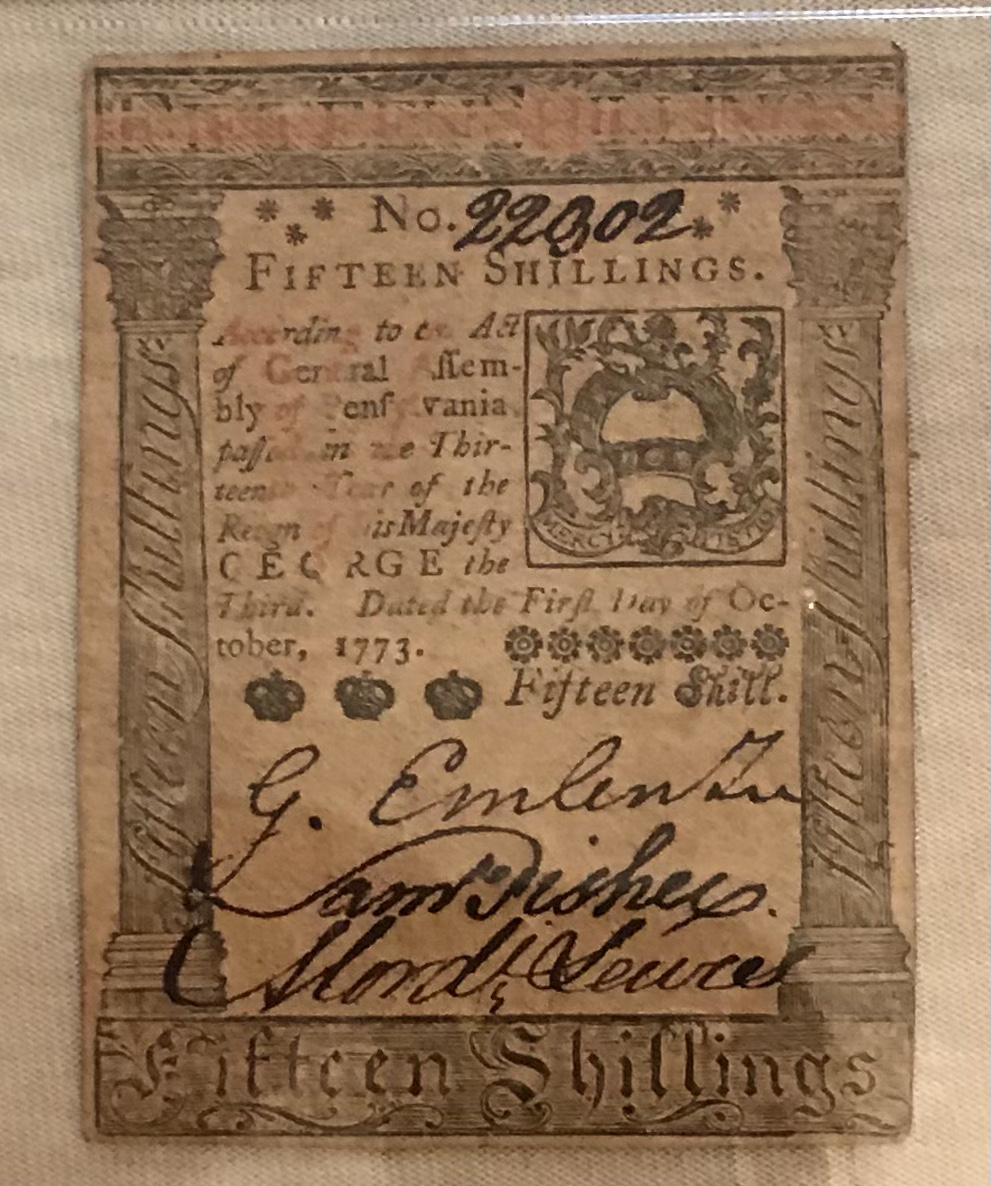 FIFTEEN SHILLINGS
No. 22302
FIFTEEN SHILLINGS.
According to an Act
of General Aſſem-
bly of Penſylvania
paſſed in the Thir-
teenth Year of the
Reign of his Majeſty
GEORGE the
Third. Dated the Firſt Day of Oc-
tober, 1773.
Fifteen Shill.
MERCY JUSTICE
Fifteen Shillings
Fifteen Shillings
G. Emlen Jun
Saml Fisher.
Mord
Fifteen Shillings